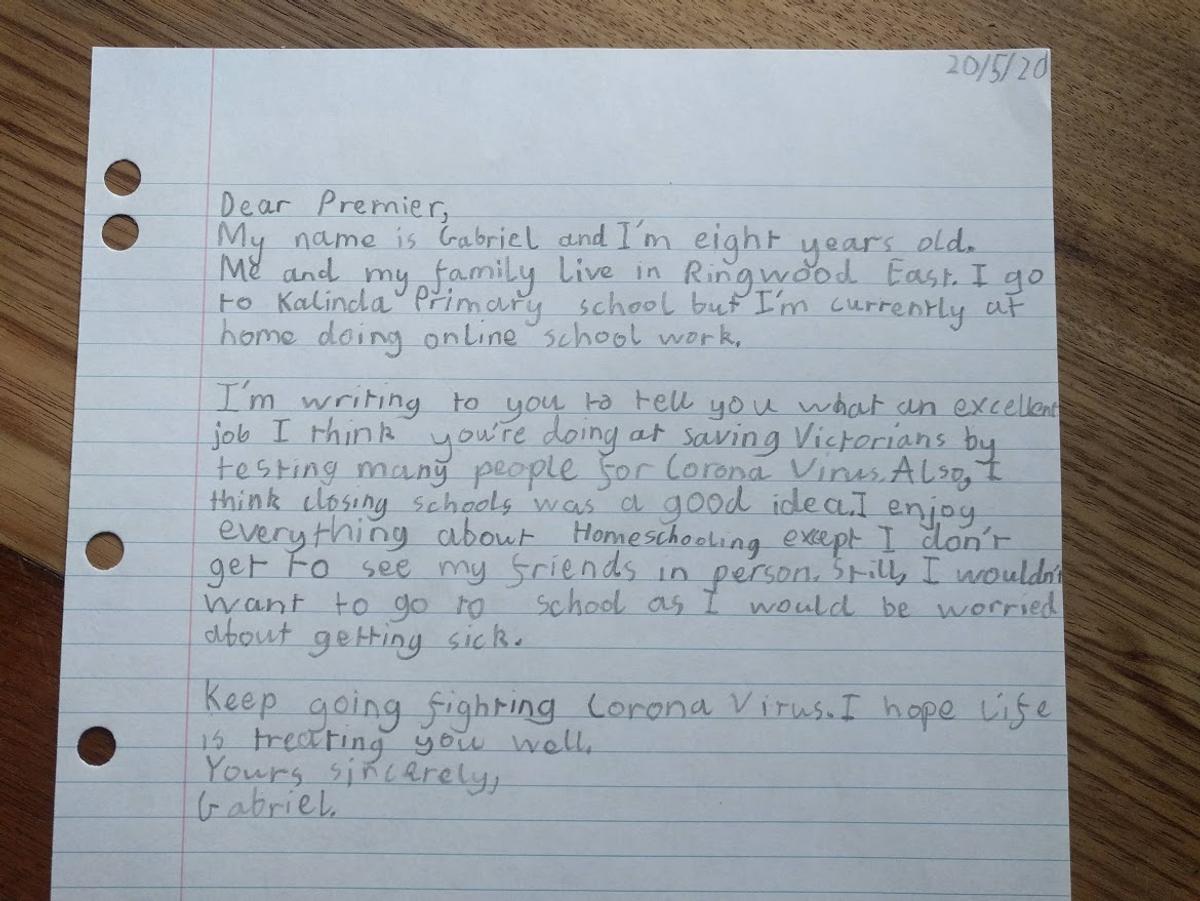 20/5/20
Dear Premier,
My name is Gabriel and I'm eight years old.
Me and my family live in Ringwood East. I go
to Kalinda Primary school but I'm currently at
home doing online school work.
I'm writing to you to tell you what an excellent
job I think you're doing at saving Victorians by
testing many people for Corona Virus. Also, I
think closing schools was a good idea. I enjoy
everything about Homeschooling except I don't
get to see my friends in person. Still, I wouldn't
want to go to school as I would be worried
about getting sick.
Keep going fighting Corona Virus. I hope life
is treating you well.
Yours sincerely,
Gabriel.